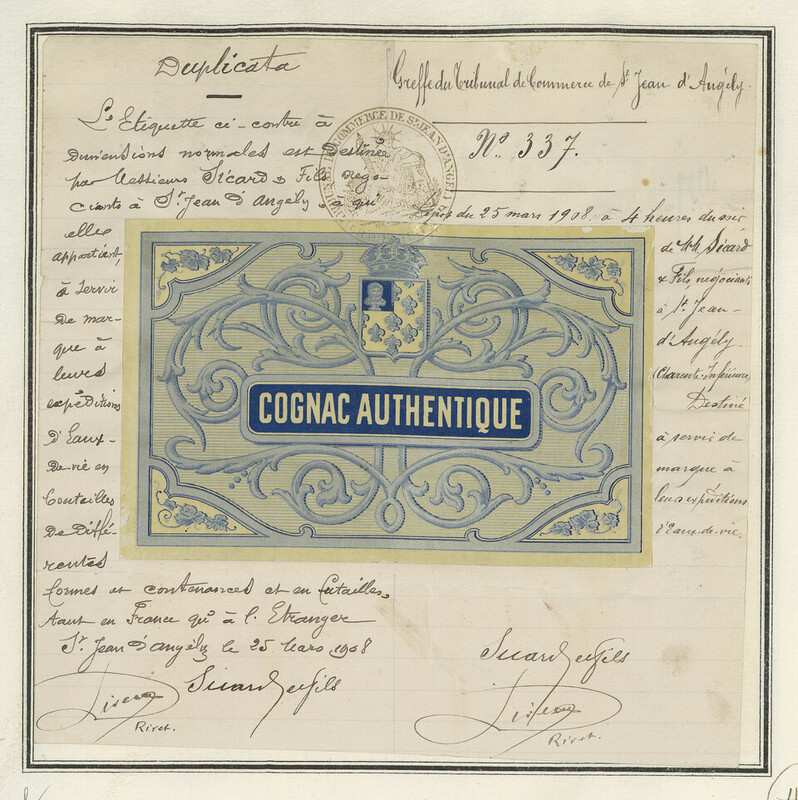 Duplicata
L'Etiquette ci-contre à
dimensions normales est Destinée
par Messieurs Sicard & Fils négo-
ciants à St Jean d'Angély, à qui
elle
appartient,
à servir
De mar-
que à
leurs
expéditions
d'Eaux-
De-vie en
bouteilles
De Diffé-
rentes
formes et contenances et en futailles,
tant en France qu'à l'Etranger
St Jean d'Angély le 25 Mars 1908
Sicard et fils
Rivet.
Greffe du Tribunal de Commerce de St Jean d'Angély.
No 337.
Dépôt du 25 mars 1908 à 4 heures du soir
de MM. Sicard
& Fils négociants
à St Jean-
d'Angély.
(Charente-Inférieure)
Destiné
à servir de
marque à
leurs expéditions
d'Eaux-de-vie.
Sicard et fils
Rivet.
COMMERCE DE ST JEAN D'ANGELY
COGNAC AUTHENTIQUE